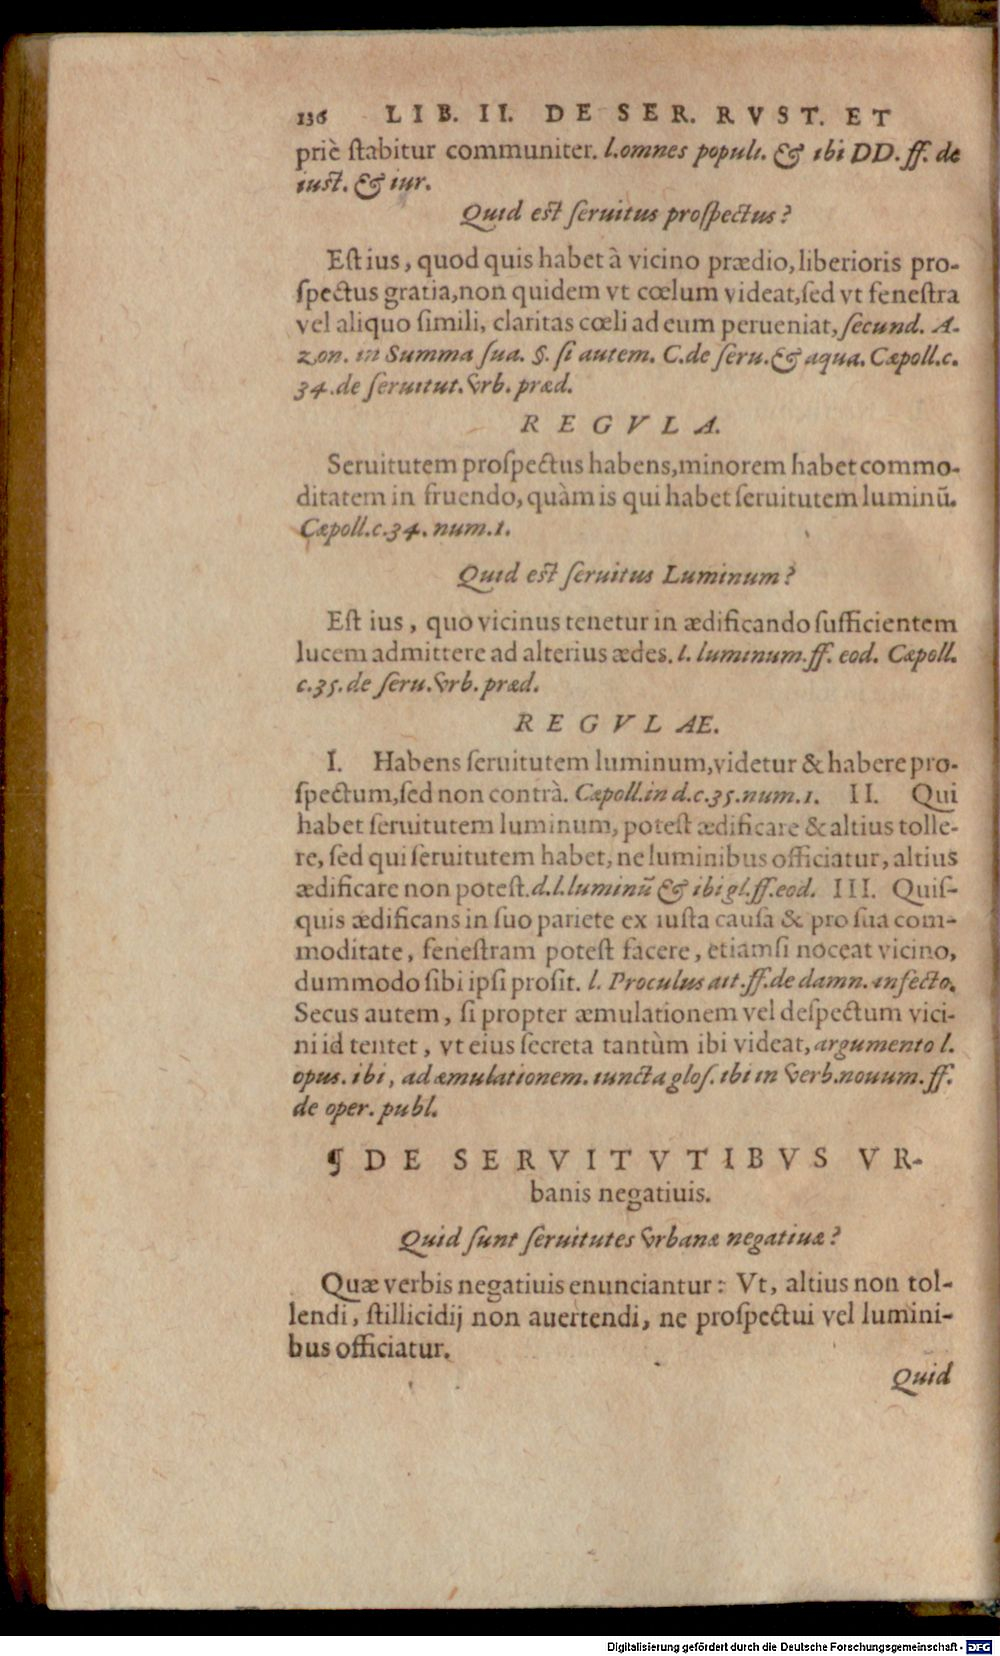 136 LIB. II. DE SER. RVST. ET
priè ſtabitur communiter. l.omnes populi. & ibi DD. ff. de
iust. & iur.
Quid eſt ſeruitus proſpectus?
Eſt ius, quod quis habet à vicino prædio, liberioris pro-
ſpectus gratia, non quidem vt cœlum videat, ſed vt feneſtra
vel aliquo ſimili, claritas cœli ad eum perueniat, ſecund. A-
zon. in Summa ſua. §. ſi autem. C. de ſeru. & aqua. Cæpoll. c.
34. de ſeruitut. vrb. præd.
REGVLA.
Seruitutem proſpectus habens, minorem habet commo-
ditatem in fruendo, quàm is qui habet ſeruitutem luminū.
Cæpoll. c. 34. num. 1.
Quid eſt ſeruitus Luminum?
Eſt ius, quo vicinus tenetur in ædificando ſufficientem
lucem admittere ad alterius ædes. l. luminum. ff. eod. Cæpoll.
c. 35. de ſeru. vrb. præd.
REGVLAE.
I. Habens ſeruitutem luminum, videtur & habere pro-
ſpectum, ſed non contrà. Cæpoll. in d. c. 35. num. 1. II. Qui
habet ſeruitutem luminum, poteſt ædificare & altius tolle-
re, ſed qui ſeruitutem habet, ne luminibus officiatur, altius
ædificare non poteſt. d. l. luminū & ibi gl. ff. eod. III. Quiſ-
quis ædificans in ſuo pariete ex iuſta cauſa & pro ſua com-
moditate, feneſtram poteſt facere, etiamſi noceat vicino,
dummodo ſibi ipſi proſit. l. Proculus ait. ff. de damn. infecto.
Secus autem, ſi propter æmulationem vel deſpectum vici-
ni id tentet, vt eius ſecreta tantùm ibi videat, argumento l.
opus. ibi, ad æmulationem. iuncta gloſ. ibi in verb. nouum. ff.
de oper. publ.
¶ DE SERVITVTIBVS VR-
banis negatiuis.
Quid ſunt ſeruitutes vrbanæ negatiuæ?
Quæ verbis negatiuis enunciantur: Vt, altius non tol-
lendi, ſtillicidij non auertendi, ne proſpectui vel lumini-
bus officiatur.
Quid
Digitalisierung gefördert durch die Deutsche Forschungsgemeinschaft - DFG